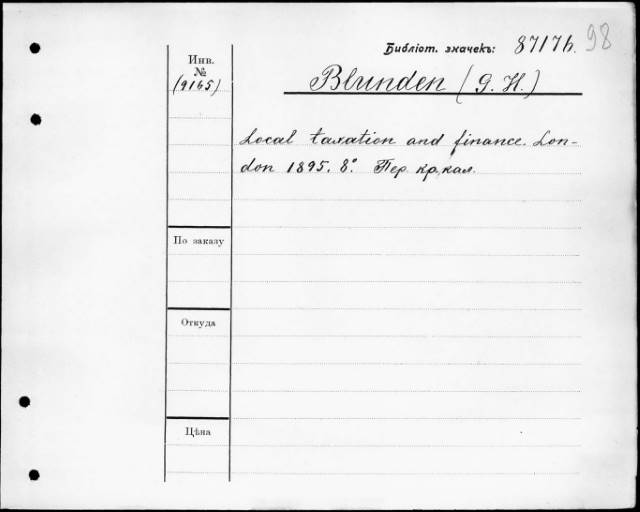 Библіот. значекъ: 87176. 98
Инв.
№
(9165)
Blunden (G. H.)
Local taxation and finance. Lon-
don 1895. 8°. Пер. кр. кал.
По заказу
Откуда
Цѣна